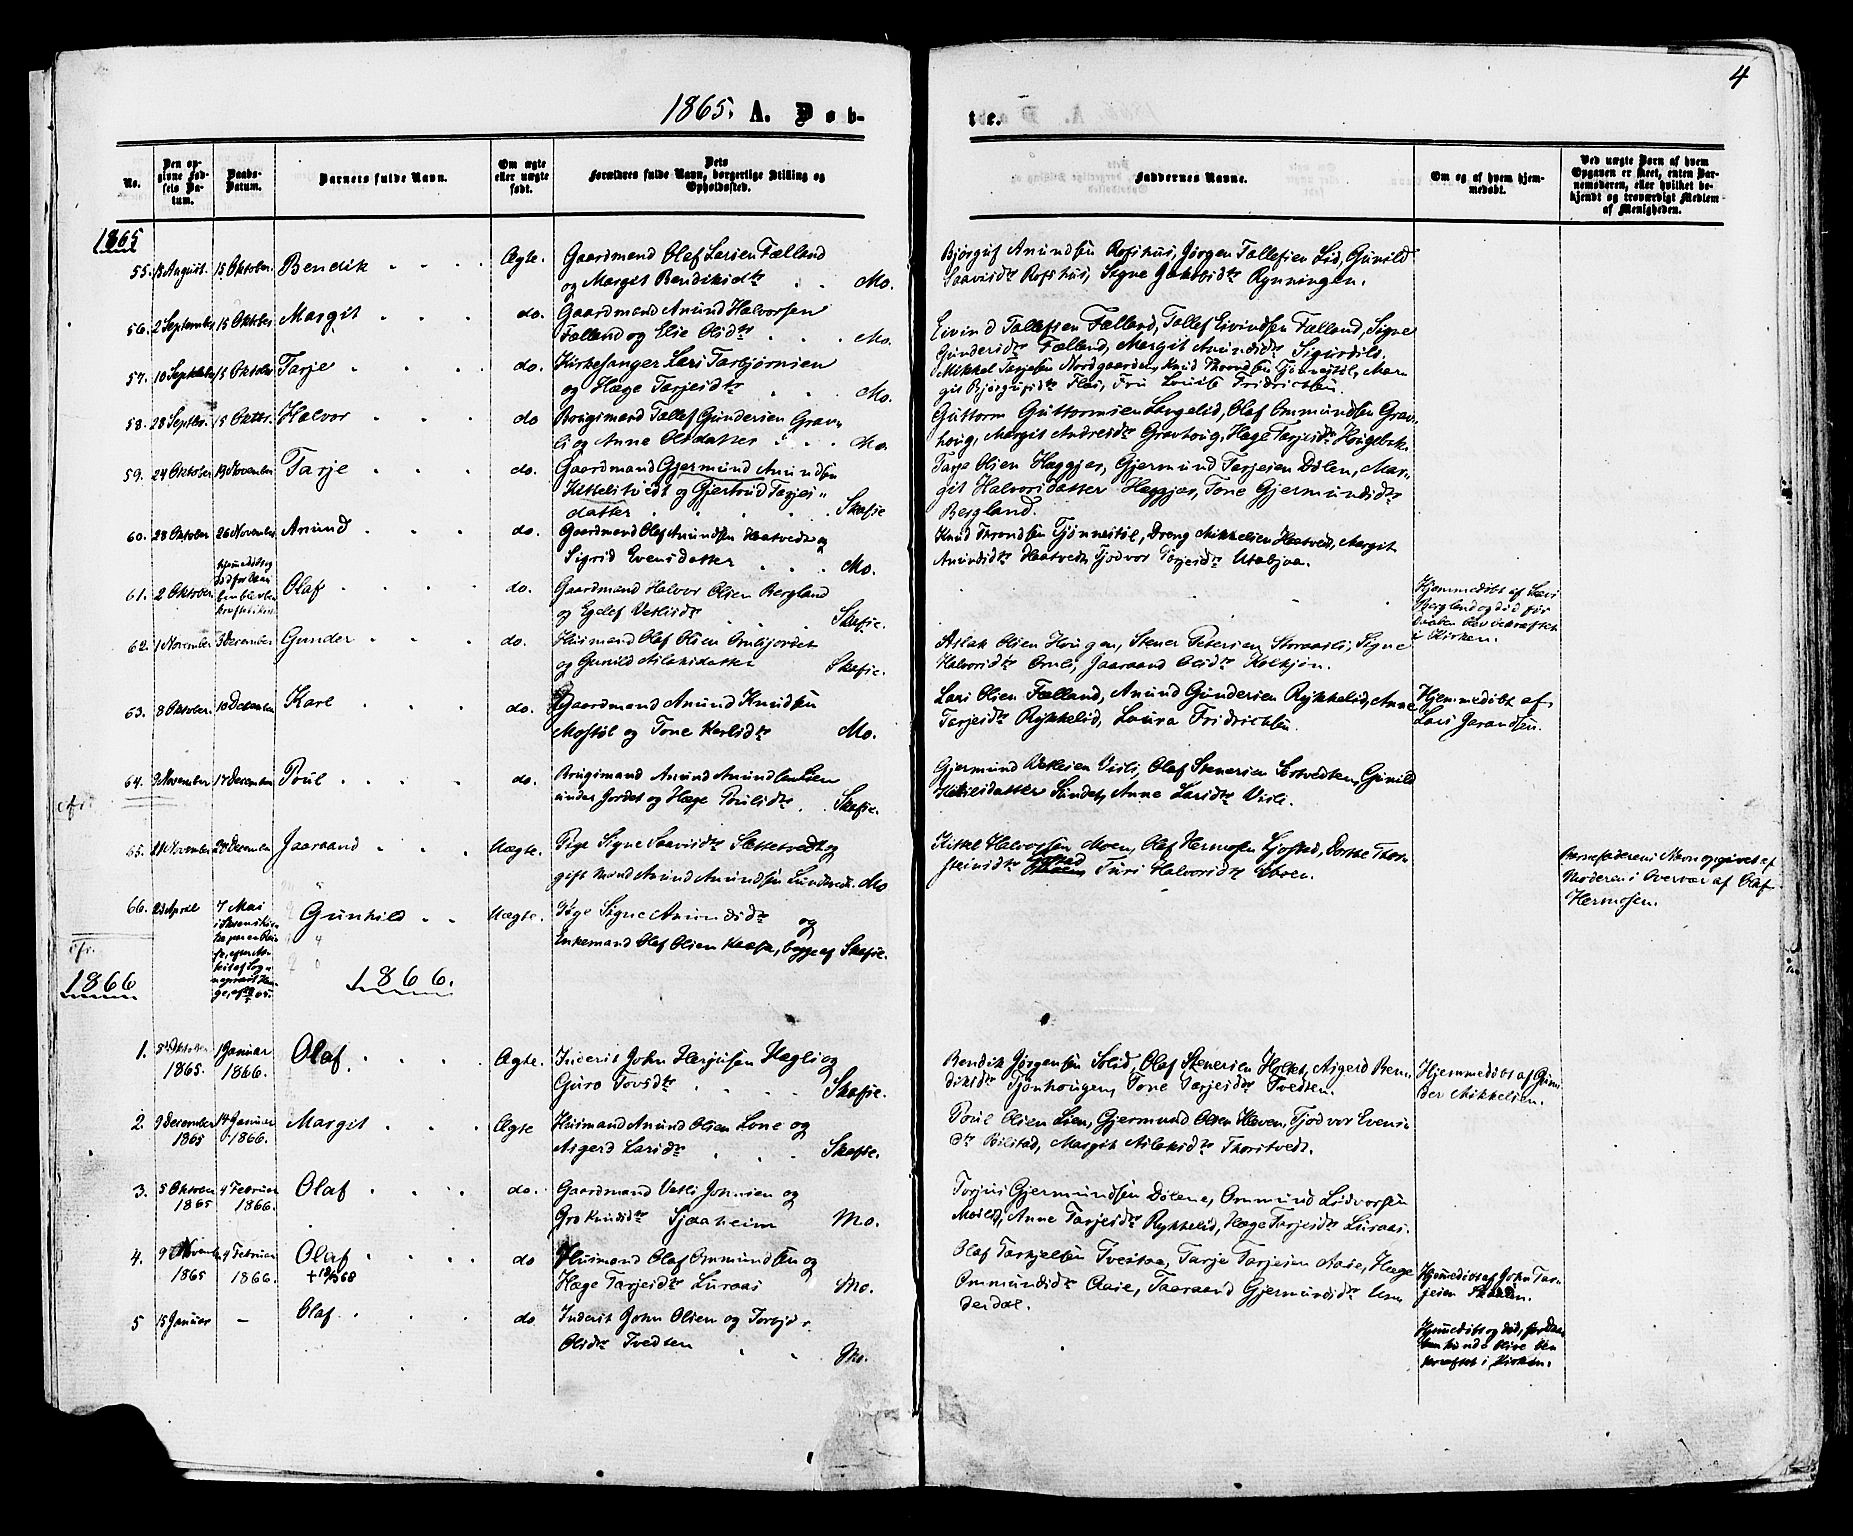 4
1865. A. Døb-
te.
No.
Den opgivne Fødsels Datum.
Daabs-Datum.
Barnets fulde Navn.
Om ægte eller uægte født.
Dets Forældres fulde Navn, borgerlige Stilling og Opholdssted.
Faddernes Navne.
Om og af hvem hjemmedøbt.
Ved uægte Barn af hvem Opgaven er skeet, enten Barnemoderen, eller hvilket bekjendt og troværdigt Medlem af Menigheden.
1865
55. 18 August. 15 Oktober Bendik Ægte. Gaardmand Olef Larsen Fælland
og Margit Bendiksdtr Mo.
Bjørguf Anundsen Rofshus, Jørgen Tallefsen Lid, Gunild
Saavesdtr Rofshus, Signe Jakobsdtr Rynningen.
56. 2 September 15 Oktober Margit do. Gaardmand Anund Halvorsen
Fælland og Else Olsdtr Mo.
Eivind Tallefsen Fælland, Tallef Eivindsen Fælland, Signe
Gundersdtr Fælland, Margit Anundsdtr
57. 10 September 15 Oktober Tarje do. Kirkesanger Lars Tarbjørnsen
og Hæge Tarjesdtr Mo.
Mikkel Tarjesen Nordgaarden, Knud Throndsen Tjønnestøl, Mar-
git Bjørgufsdtr Fru Louise Fridrichsen
58. 28 Septbr. 15 Oktbr. Halvor do Brugsmand Tallef Gundersen Grav-
og Anne Olsdatter Mo.
Guttorm Guttormsen Langelid, Olaf Ommundsen Grav-
houg, Margit Andresdtr Gravhoug, Hæge Tarjesdtr
59. 24 Oktober 19 November Tarje do. Gaardmand Gjermund Anundsen
Kittelstvedt og Gjertrud Tarjes-
datter Skafse
Tarje Olsen Heggjes, Gjermund Tarjesen Dølen, Mar-
git Halvorsdatter Heggjes, Tone Gjermundsdtr
Bergland.
60. 28 Oktober 26 November Anund do. Gaardmand Olef Anundsen Haatvedt og
Sigrid Evensdatter Mo.
Knud Throndsen Tjønnestøl, Dreng Mikkelsen Haatvedt, Margit
Anundsdtr Haatvedt, Tjodvor Tarjesdtr Utabjaa.
61. 2 Oktober Olaf do. Gaardmand Halvor Olsen Bergland
og Egelef Vetlesdtr Skafse.
Hjemmedøbt af Lars
Bergland og død før
Daaben blev bekræftet
i Kirken.
62. 1 November 3 December Gunder do. Huusmand Olaf Olsen
og Gunild Aslaksdatter Skafse.
Aslak Olsen Hougen, Stener Petersen Storaasli, Signe
Halvorsdtr Jaaraand Olsdtr
63. 8 Oktober 10 December Karl do. Gaardmand Anund Knudsen
Mostøl og Tone Karlsdtr Mo.
Lars Olsen Fælland, Anund Gundersen Rykkelid, Anne
Tarjesdtr Rykkelid, Laura Fridrichsen.
Hjemmedøbt af
Lars Gerandsen.
64. 9 November 17 December Poul do. Brugsmand Anund Anundsen Lien
under Jordet og Hæge Poulsdtr Skafse.
Gjermund Vetlesen Vesli, Olaf Stenersen Gunild
Kittilsdatter Sundet, Anne Larsdtr Vesli.
cfr.
65. 21 November December Jaaraand Uægte. Pige Signe Saavesdtr og
gift Mand Anund Anundsen Mo
Kittel Halvorsen Moen, Olaf Hermosen Dorthe Thor-
steinsdtr Turi Halvorsdtr Moen.
Barnefaderens Navn opgivet af
Moderen i Overvær af Olaf
Hermosen.
66. 23 April 7 Mai Gunhild Uægte. Pige Signe Anundsdtr og
Enkemand Olaf Olsen begge af Skafse.
cfr.
1866 1866.
1. Oktober 1865. Januar 1866. Olaf Ægte. Inderst John Herjusen Hægli og
Guro Tovsdtr Skafse.
Bendik Jørgensen Solid, Olaf Stenersen Asgerd Ben-
diksdtr Tjønhougen, Tone Tarjesdtr Tvedten.
Hjemmedøbt af Gun-
der Mikkelsen.
2. 9 December 1865 14 Januar 1866. Margit Ægte Huusmand Anund Olsen Lone og
Asgerd Larsdtr Skafse.
Poul Olsen Lien, Gjermund Olsen Tjodvor Evens-
dtr Margit Aslaksdtr Thorstvedt.
3. 5 Oktober 1865 4 Februar 1866. Olaf do. Gaardmand Vetle Johnsen og
Gro Knudsdtr Sjaaheim Mo.
Torjus Gjermundsen Dølene, Ommund Lidvorsen
Anne Tarjesdtr Rykkelid, Hæge Tarjesdtr Luraas.
4. 9 November 1865 4 Februar 1866. Olaf do Huusmand Olaf Ommundsen og
Hæge Tarjesdtr Luraas Mo.
Olaf Tarkjelsen Tveitaa, Tarje Tarjesen Aase, Hæge
Ommundsdtr Aase, Taaraand Gjermundsdtr Un-
derdal.
Hjemmedøbt af John Tar-
jesen
5 15 Januar - Olaf do Inderst John Olsen og
Olsdtr Tvedten Mo.
Hjemmedøbt og død, før Daa-
ben kunde blive be-
kræftet i Kirken.